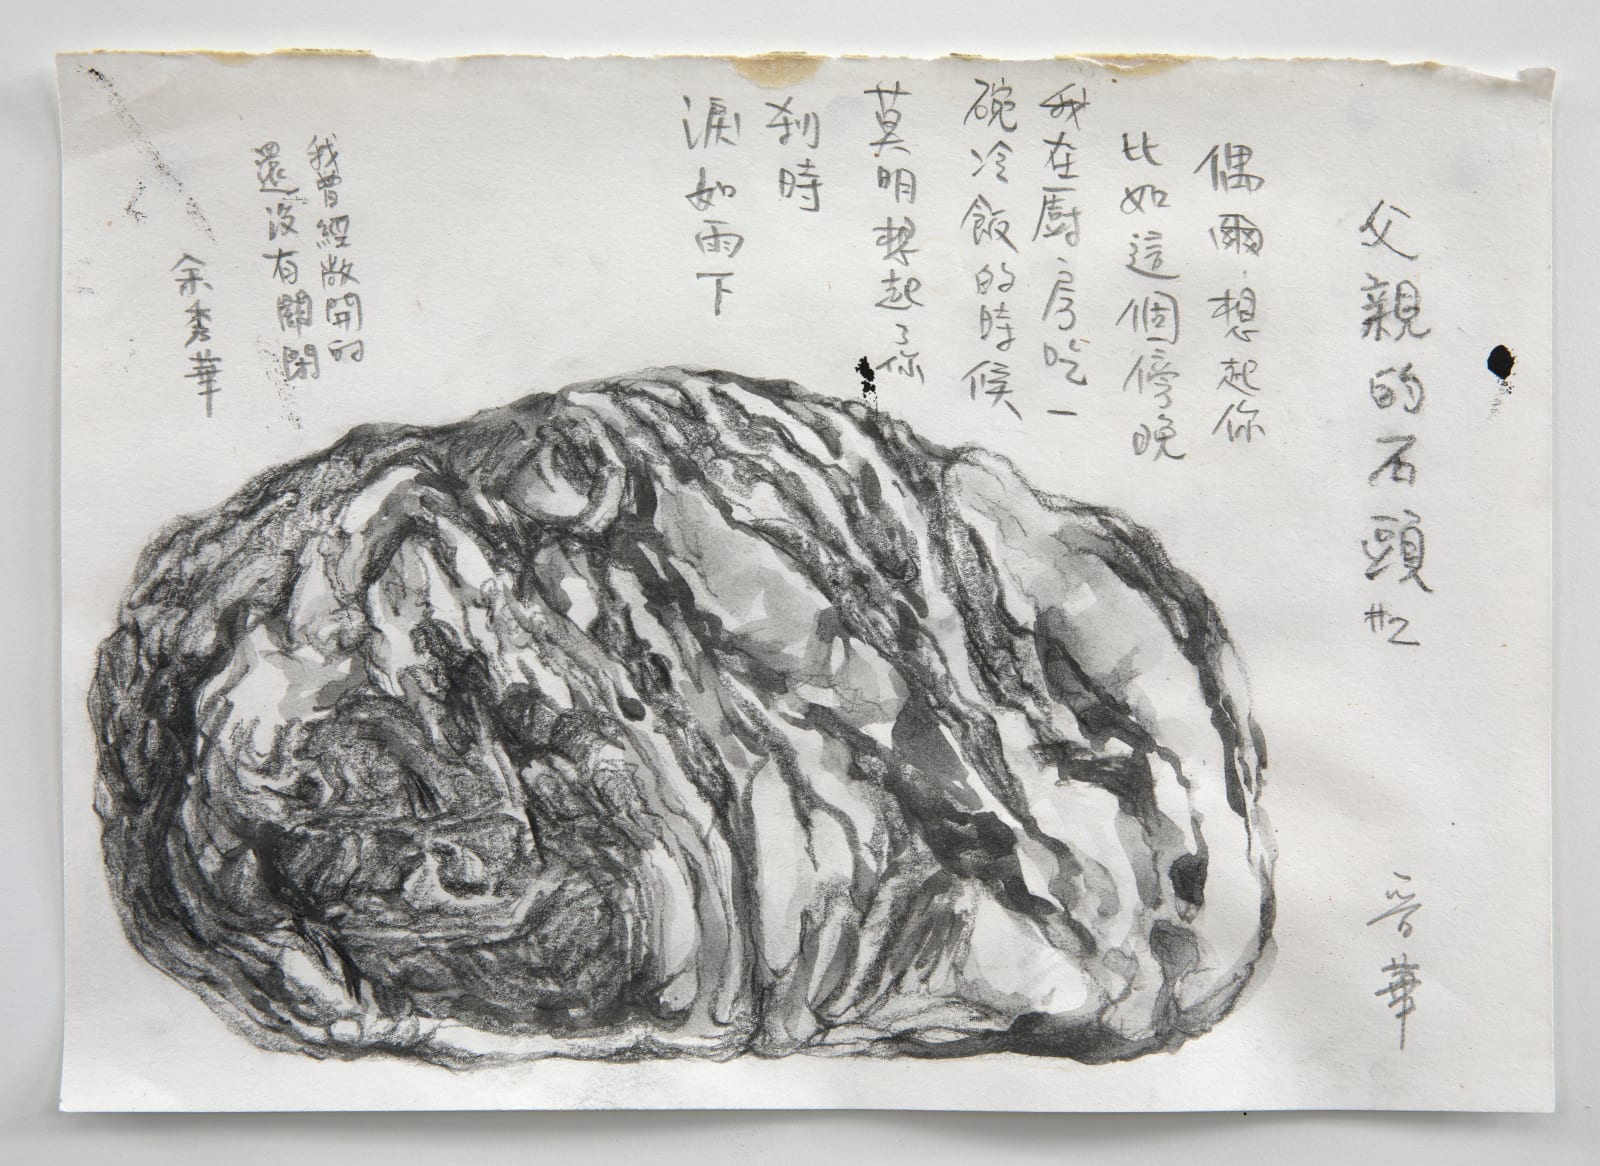 父親的石頭#2
晉華
偶爾想起你
比如這個傍晚
我在廚房吃一
碗冷飯的時候
莫明想起了你
刹時
淚如雨下
我曾經敞開的
還沒有關閉
余秀華